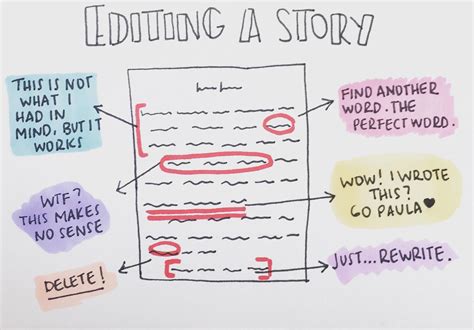 EDITING A STORY
THIS IS NOT
WHAT I
HAD IN
MIND, BUT IT
WORKS
FIND ANOTHER
WORD. THE
PERFECT WORD.
WTF?
THIS MAKES
NO SENSE
WOW! I WROTE
THIS?
GO PAULA♥
DELETE!
JUST...REWRITE.